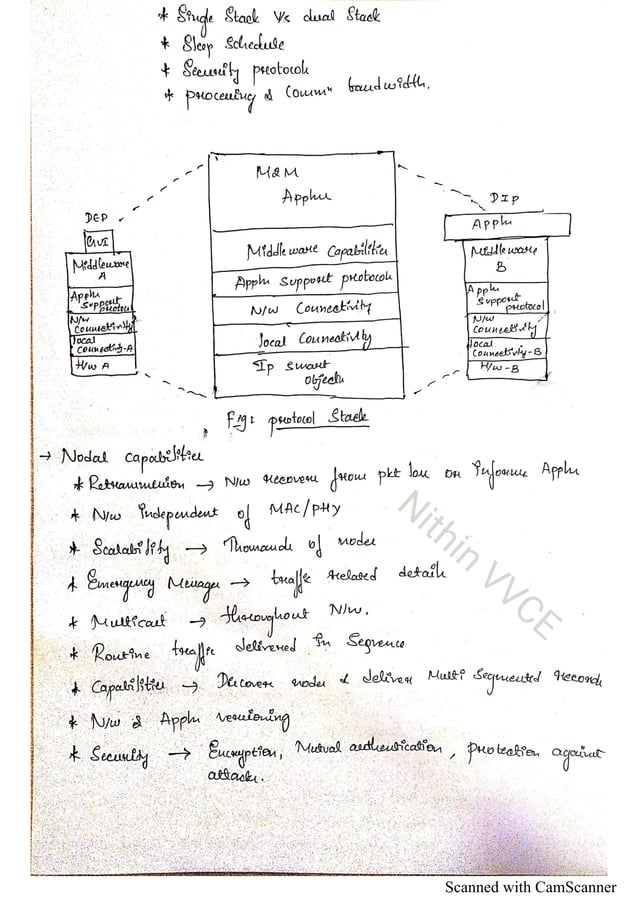 * Single Stack Vs dual Stack
* Sleep schedule
* Security protocols
* processing & Commn bandwidth.
M2M
Appln
Middleware Capabilities
Appln Support protocols
N/w Connectivity
local Connectivity
Ip smart
objects
DEP
GUI
Middleware
A
Appln
support
protocol
N/w
Connectivity
local
Connectivity-A
H/w A
DIP
Appln
Middleware
B
Appln
support
protocol
N/w
Connectivity
local
Connectivity-B
H/w-B
Fig: protocol Stack
→ Nodal capabilities
* Retransmission → N/w recovers from pkt loss or Informs Appln
* N/w Independent of MAC/PHY
* Scalability → Thousands of nodes
* Emergency Messages → traffic related details
* Multicast → throughout N/w.
* Routine traffic delivered In Sequence
* Capabilities → Discover nodes & deliver Multi Segmented records
* N/w & Appln versioning
* Security → Encryption, Mutual authentication, protection against
attacks.
Nithin VVCE
Scanned with CamScanner